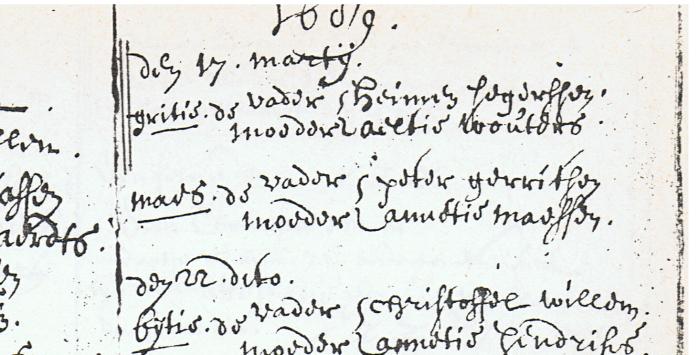 1689.
den 17. martij.
gritie. de vader heimen segerssen.
moeder aeltie wouters
maes. de vader peter gerritsen
moeder annetie maessen.
den 22. dito.
bytie. de vader christoffel willem.
moeder annetie hindriks.
llem.